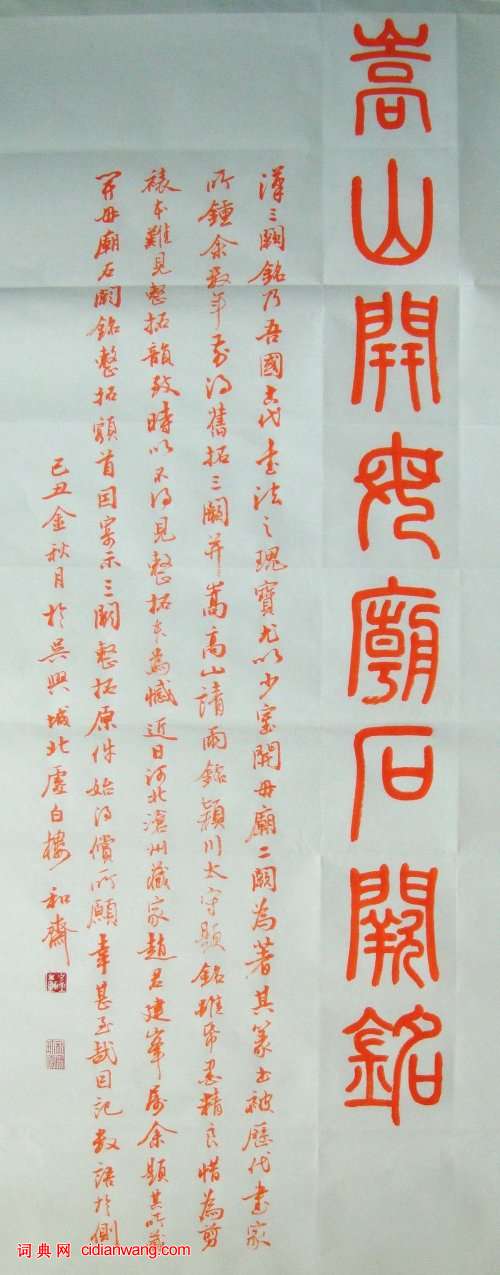 嵩山開母廟石闕銘
漢三闕銘乃吾國古代書法之瑰寶尤以少室開母廟二闕為著其篆書被歷代書家
所鍾余數年前得舊拓三闕并嵩高山請雨銘潁川太守題銘雖帋墨精良惜為剪
裱本難見整拓韻致時以不得見整拓為憾近日河北滄州藏家趙君建峯屬余題其所藏
開母廟石闕銘整拓額首因寄示三闕整拓原件始得償所願幸甚至哉因記數語於側
己丑金秋月於吳興城北虛白樓和齋
词典网 cidianwang.com